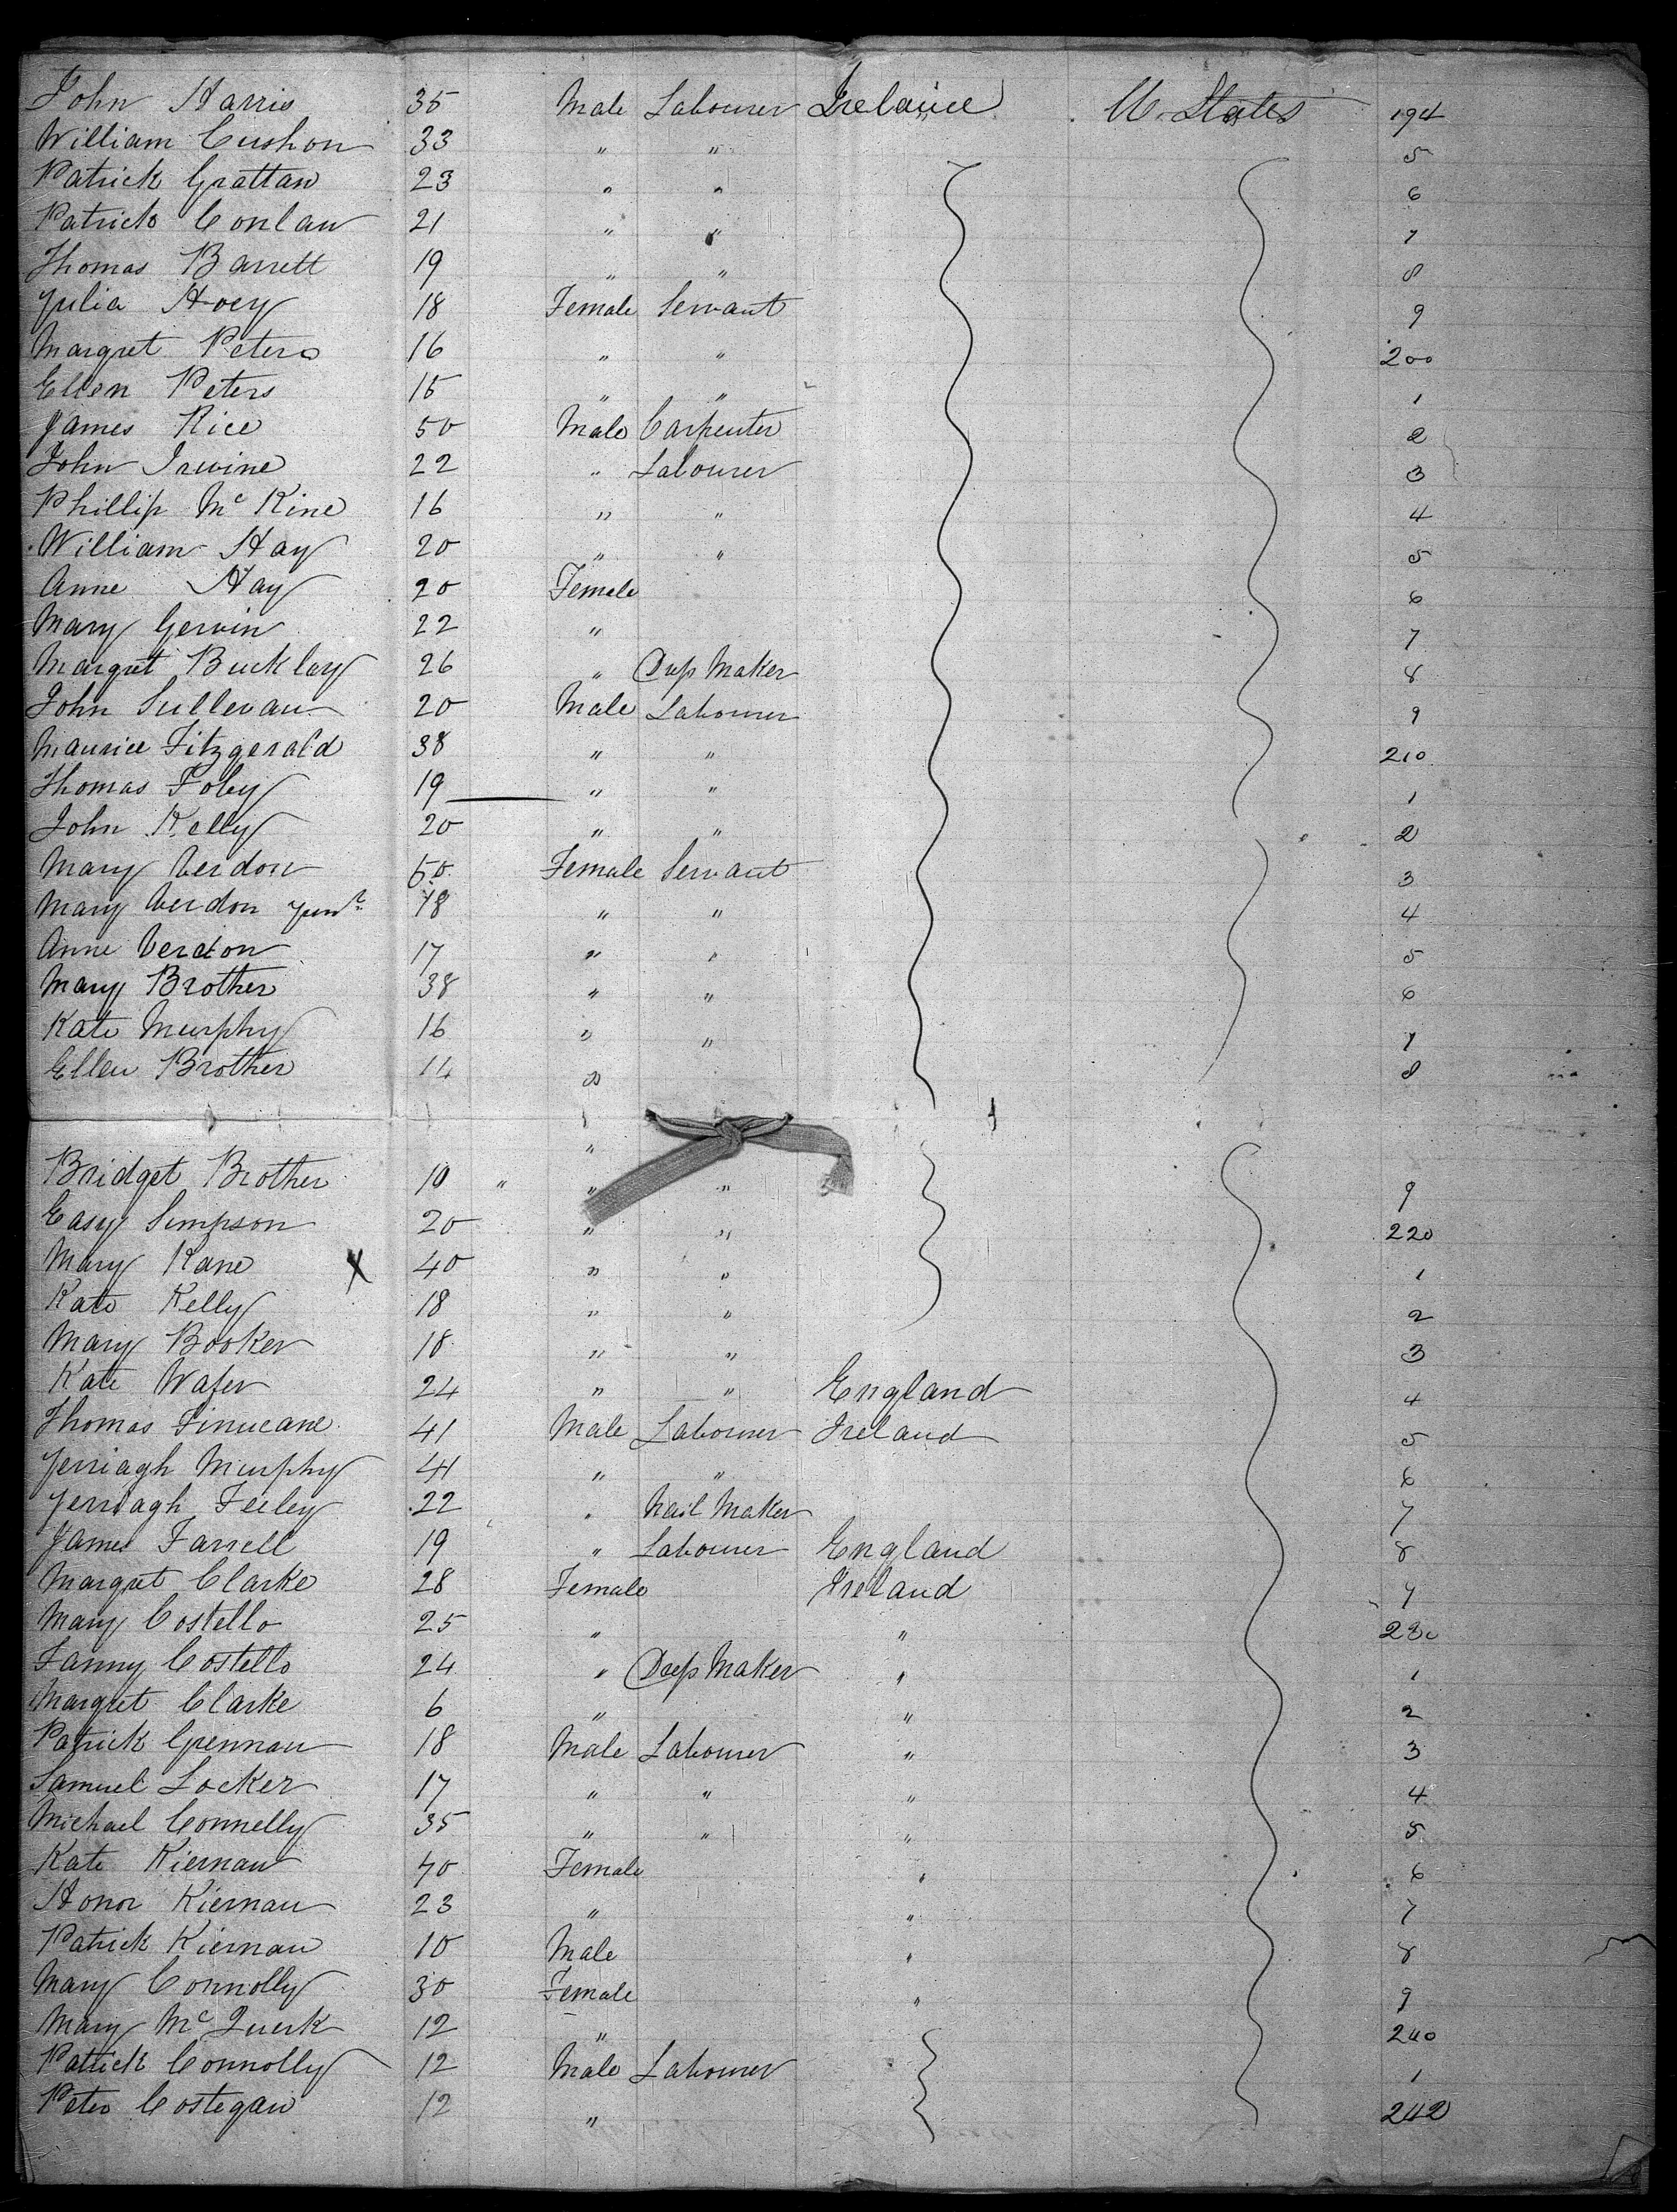 John Harris 35 Male Labourer Ireland U. States 194
William Cushon 33 " " 5
Patrick Grattan 23 " " 6
Patrick Conlan 21 " " 7
Thomas Barrett 19 " " 8
Julia Hoey 18 Female Servant 9
Margret Peters 16 " " 200
Ellen Peters 15 " " 1
James Rice 50 Male Carpenter 2
John Irwine 22 " Labourer 3
Phillip Mc Kine 16 " " 4
William Hay 20 " " 5
Anne Hay 20 Female 6
Mary Gervin 22 " 7
Margret Bucklay 26 " Maker 8
John Sullevan 20 Male Labourer 9
Maurice Fitzgerald 38 " " 210
Thomas Foley 19 " " 1
John Kelly 20 " " 2
Mary Verdon 50 Female Servant 3
Mary Verdon Junr 18 " " 4
Anne Verdon 17 " " 5
Mary Brother 38 " " 6
Kate Murphy 16 " " 7
Ellen Brother 14 " 8
"
Bridget Brother 10 " " " 9
Easy Simpson 20 " " 220
Mary Kane X 40 " " 1
Kate Kelly 18 " " 2
Mary Booker 18 " " 3
Kate Wafer 24 " " England 4
Thomas Finucane 41 Male Labourer Ireland 5
Jerriagh Murphy 41 " " 6
Jerriagh Feeley 22 " Nail Maker 7
James Farrell 19 " Labourer England 8
Margret Clarke 28 Female Ireland 9
Mary Costello 25 " " 230
Fanny Costello 24 " Maker " 1
Margret Clarke 6 " " 2
Patrick Grennan 18 Male Labourer " 3
Samuel Locker 17 " " " 4
Michael Connelly 35 " " " 5
Kate Kiernan 40 Female " 6
Honor Kiernan 23 " " 7
Patrick Kiernan 10 Male " 8
Mary Connolly 30 Female " 9
Mary Mc Querk 12 " 240
Patrick Connolly 12 Male Labourer 1
Peter Costegan 12 " 242